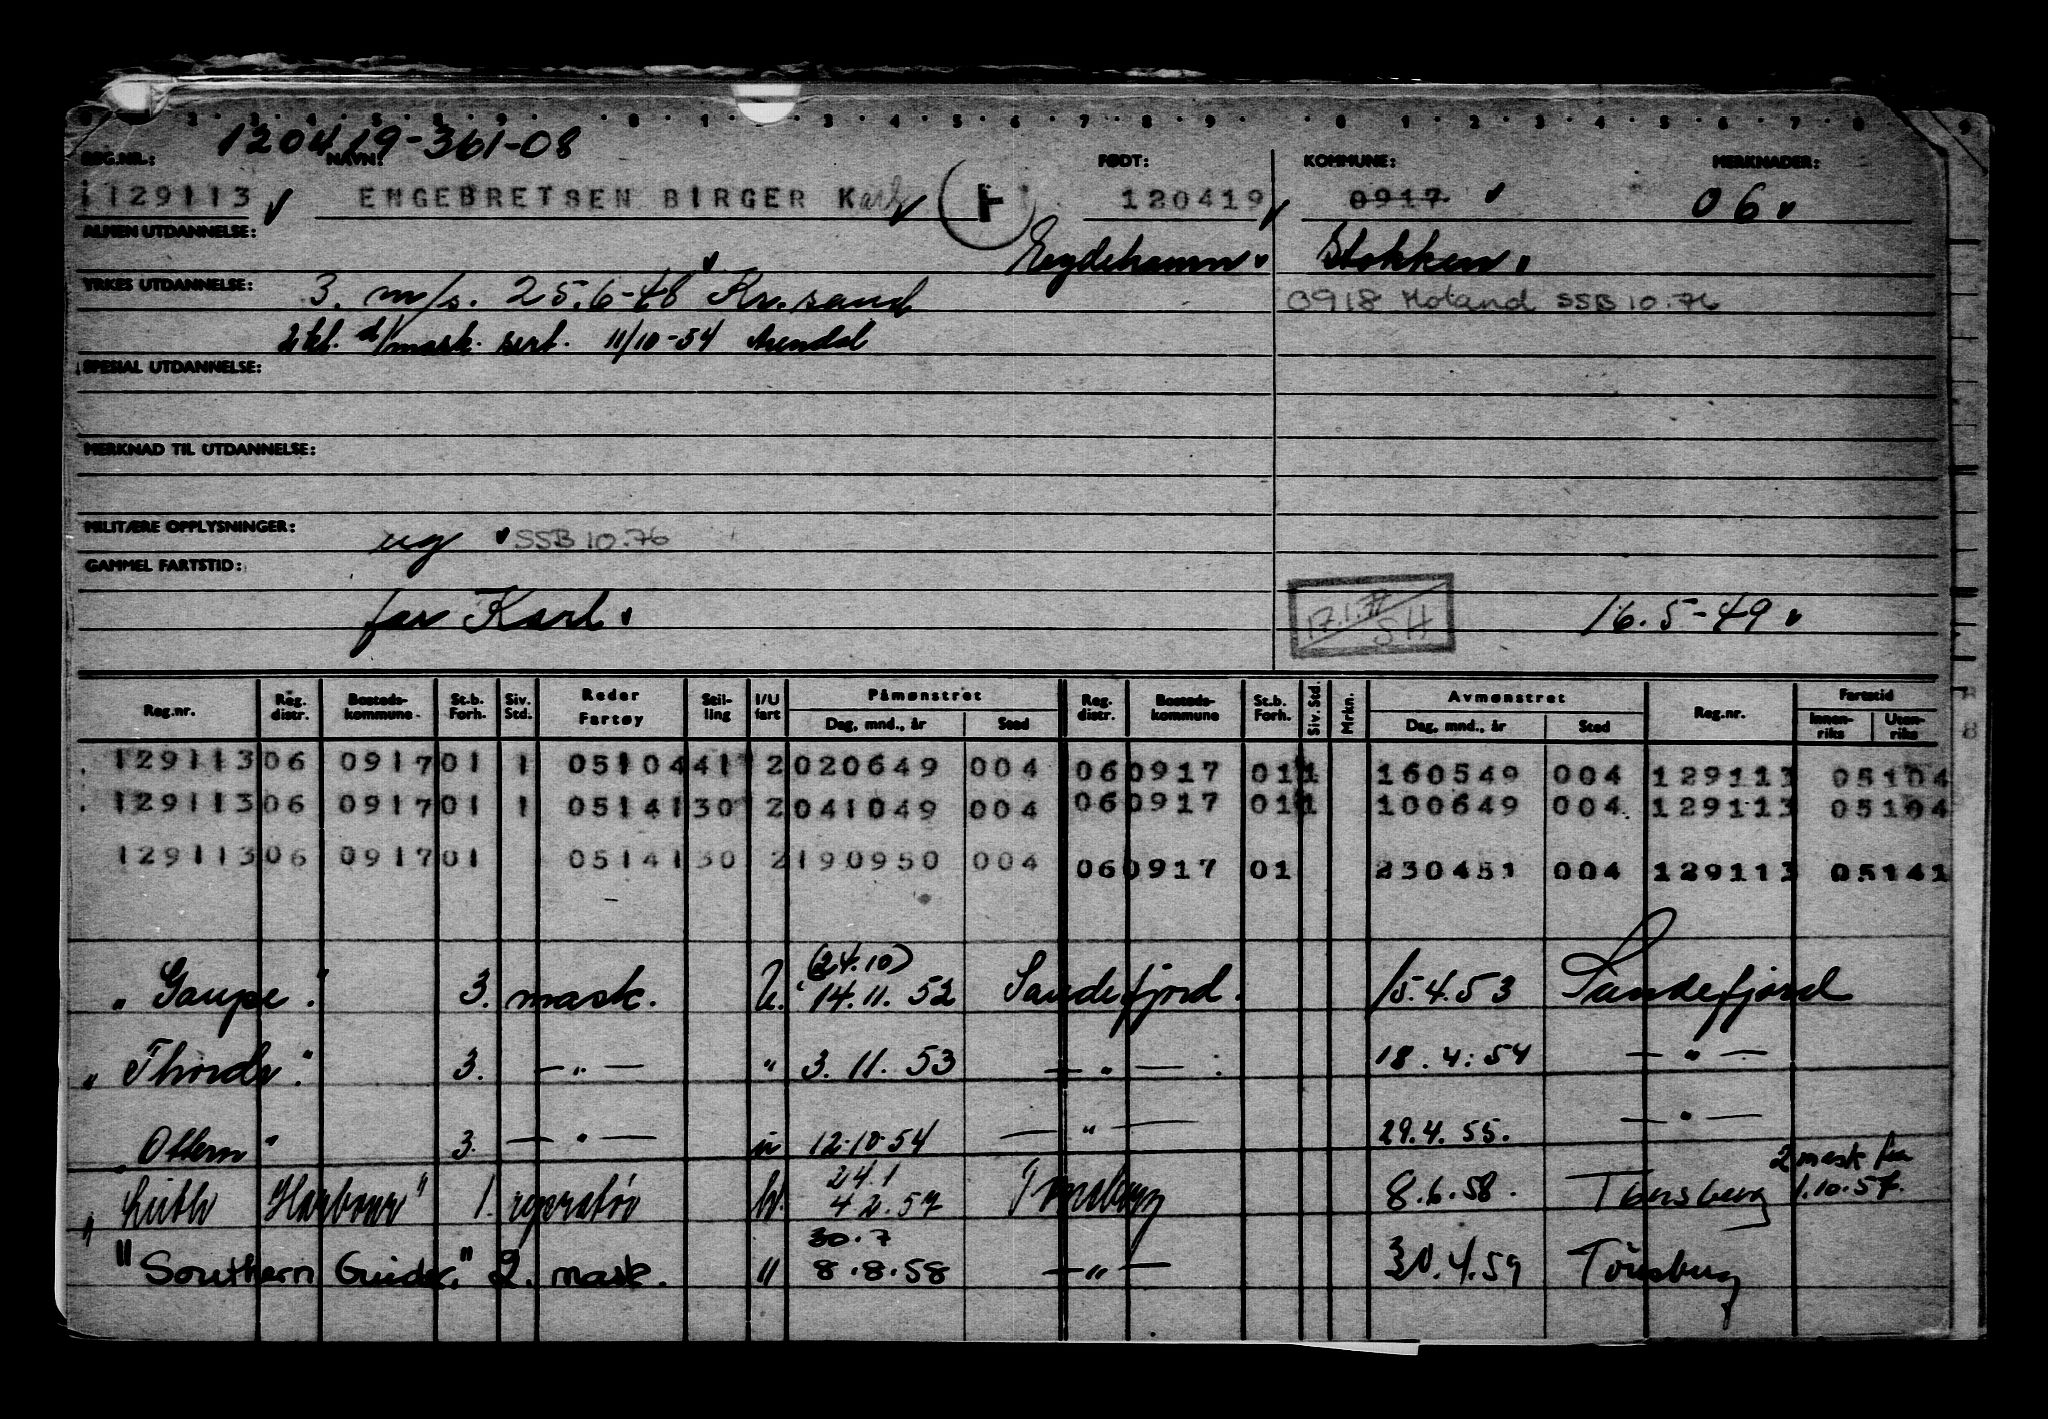 120419-361-08
REG.NR.: NAVN: FØDT: KOMMUNE: MERKNADER:
129113 ENGEBRETSEN BIRGER Karl H 120419 0917 06
ALMEN UTDANNELSE: Eydehamn. Stokken.
YRKES UTDANNELSE: 3. m/s. 25.6-48 Kr.sand 0918 Moland SSB 10.76
2 kl. d/mask. sert. 11/10-54 Arendal
SPESIAL UTDANNELSE:
MERKNAD TIL UTDANNELSE:
MILITÆRE OPPLYSNINGER: ug SSB 10.76
GAMMEL FARTSTID:
far Karl. SH 16.5-49
Reg.nr. Reg. distr. Bosteds-kommune St.b. Forh. Siv. Std. Reder Fartøy Stil-ling I/U fart Påmønstret Dag, mnd., år Sted Reg. distr. Bosteds-kommune St.b. Forh. Siv. Std. Mrkn. Avmønstret Dag, mnd., år Sted Reg.nr. Fartstid Innen-riks Uten-riks
129113 06 0917 01 1 05104 41 2 020649 004 06 0917 01 1 160549 004 129113 05104
129113 06 0917 01 1 05141 30 2 041049 004 06 0917 01 1 100649 004 129113 05104
129113 06 0917 01 05141 30 2 190950 004 06 0917 01 230451 004 129113 05141
(24.10)
„Gaupe." 3. mask. U. 14.11.52 Sandefjord. 15.4.53 Sandefjord
„Thorde." 3. —„— " 3.11.53 —„— 18.4.54 —„—
„Ottern" 3. —„— 12.10.54 —„— 29.4.55. —„—
24.1 2 mask fra
„Leith Harbour" 1. 4.2.57 Tønsberg 8.6.58. Tønsberg 1.10.57.
30.7
"Southern Guider." 2. mask. " 8.8.58 —„— 30.4.59 Tönsberg